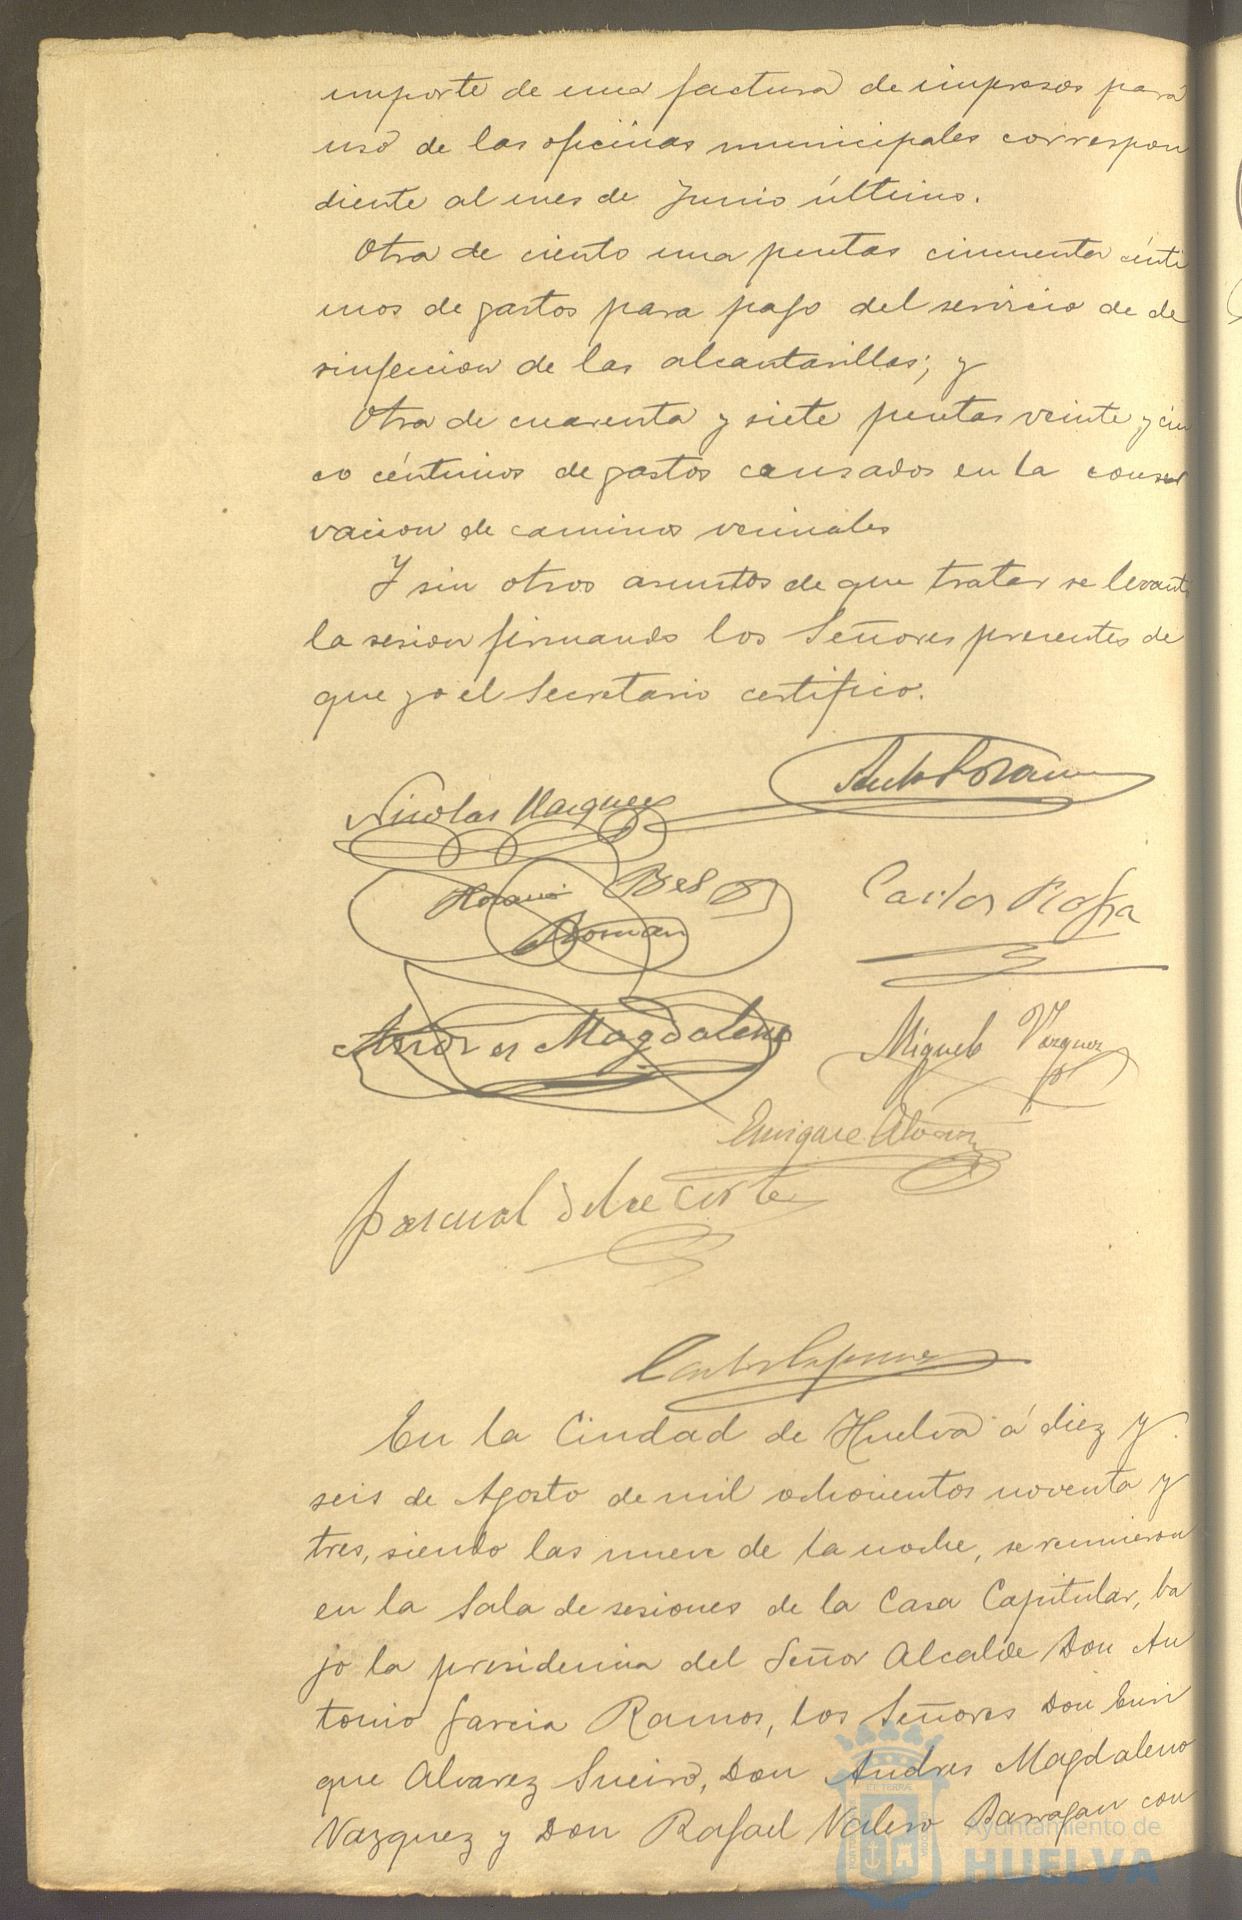 importe de una factura de impresos para
uso de las oficinas municipales correspon
diente al mes de Junio último.
Otra de ciento una pesetas cincuenta cénti
mos de gastos para pago del servicio de de
sinfeccion de las alcantarillas; y
Otra de cuarenta y siete pesetas veinte y cin
co céntimos de gastos causados en la conser
vacion de caminos vecinales
Y sin otros asuntos de que tratar se levantó
la sesion firmando los Señores presentes de
que yo el Secretario certifico.
Nicolás Vazquez
Horacio Bel
Roman
Carlos Rofa
Andres Magdaleno
Miguel Vazquez
Enrique Alvarez
Pascual de la Corte
En la Ciudad de Huelva á diez y
seis de Agosto de mil ochocientos noventa y
tres, siendo las nueve de la noche, se reunieron
en la Sala de sesiones de la Casa Capitular, ba
jo la presidencia del Señor Alcalde Don An
tonio Garcia Ramos, los Señores Don Enri
que Alvarez Sueiro, Don Andres Magdaleno
Vazquez y Don Rafael Valero Barragan con
Ayuntamiento de
HUELVA